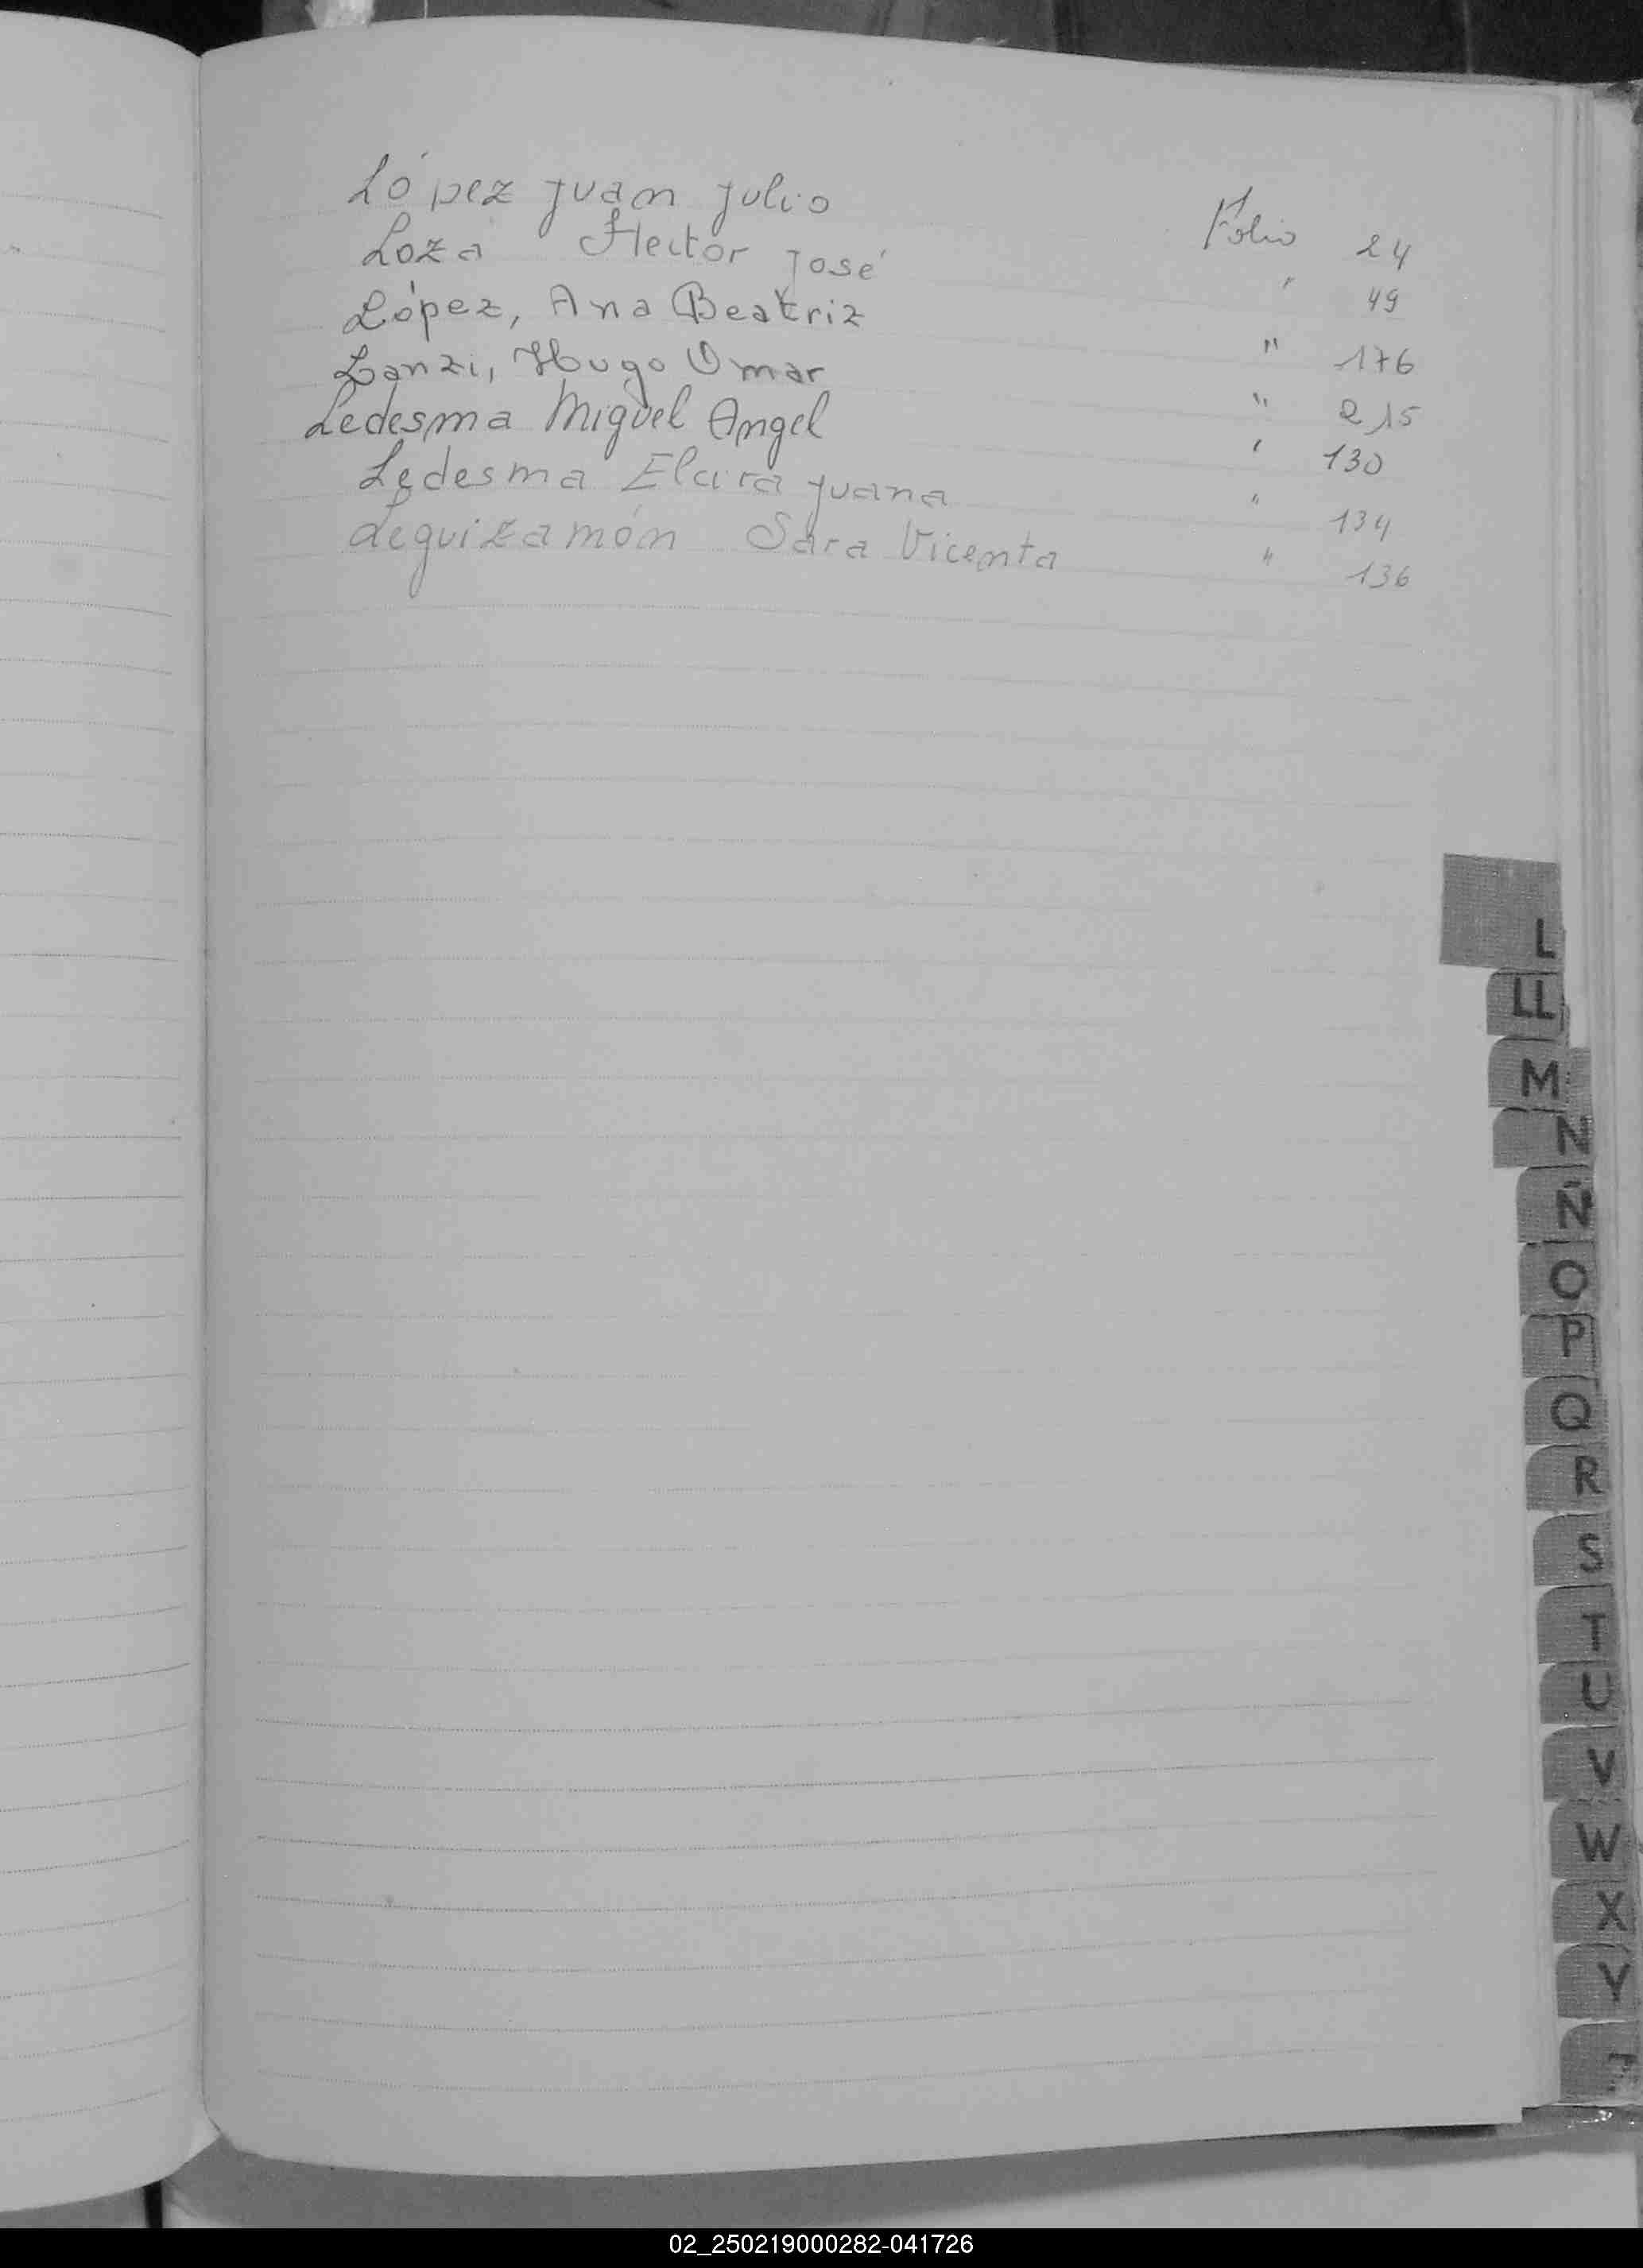 López Juan Julio Folio 24
Loza Hector José " 49
López, Ana Beatriz " 176
Lanzi, Hugo Omar " 215
Ledesma Miguel Angel " 130
Ledesma Juana " 134
Leguizamón Sara Vicenta " 136
L
LL
M
N
Ñ
O
P
Q
R
S
T
U
V
W
X
Y
02_250219000282-041726